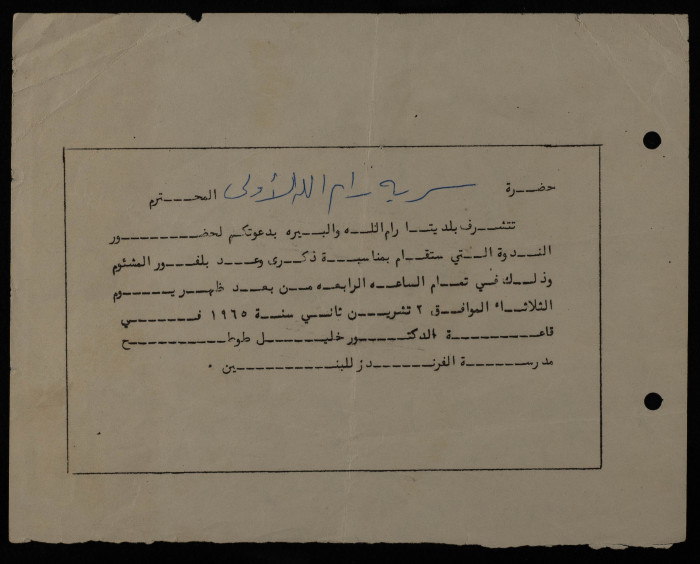 حضرة سرية رام الله الأولى المحترم
تتشرف بلديتا رام الله والبيره بدعوتكم لحضور
الندوة التي ستقام بمناسبة ذكرى وعد بلفور المشئوم
وذلك في تمام الساعه الرابعه من بعد ظهر يوم
الثلاثاء الموافق ٢ تشرين ثاني سنة ١٩٦٥ في
قاعة الدكتور خليل طوطح
مدرسة الفرندز للبنين .